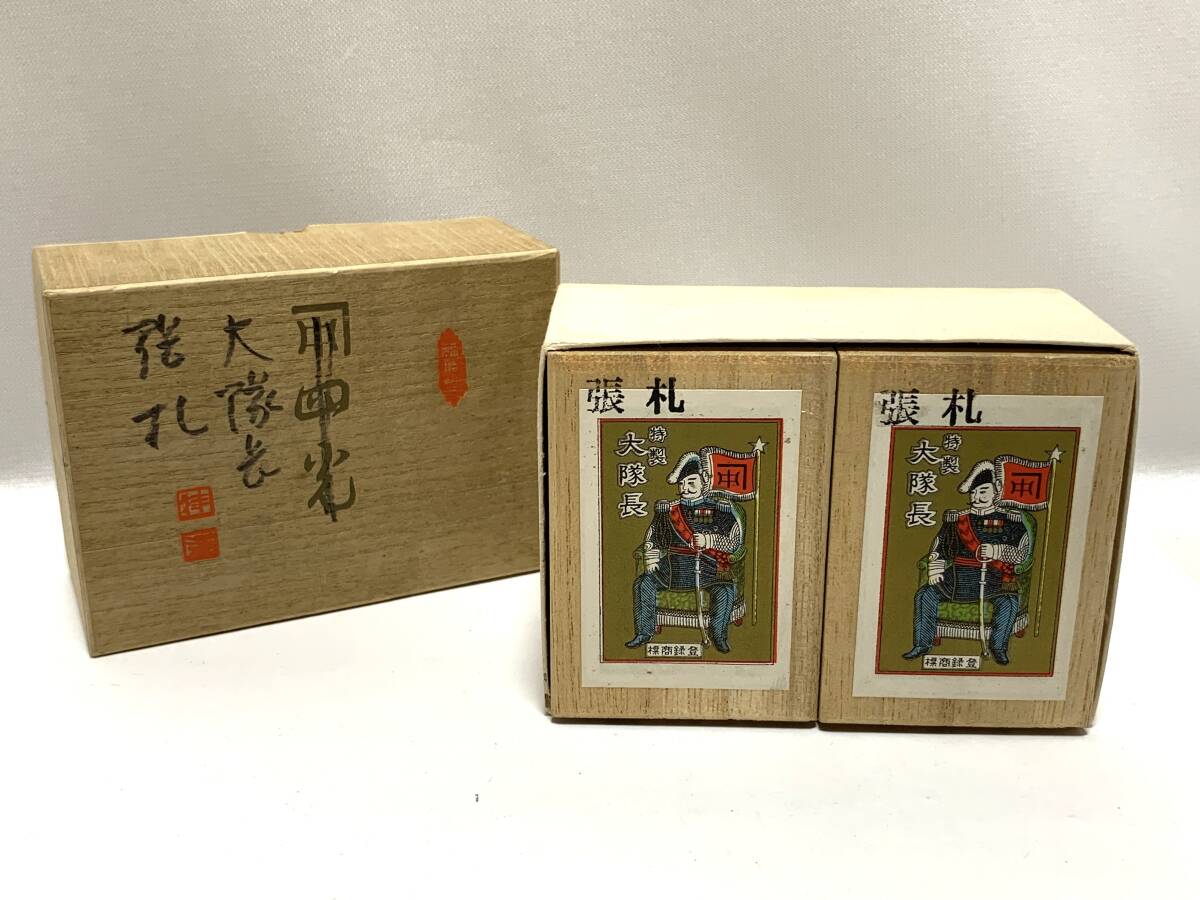 大隊長
張札
張札
特製
大隊長
申
登録商標
張札
特製
大隊長
申
登録商標